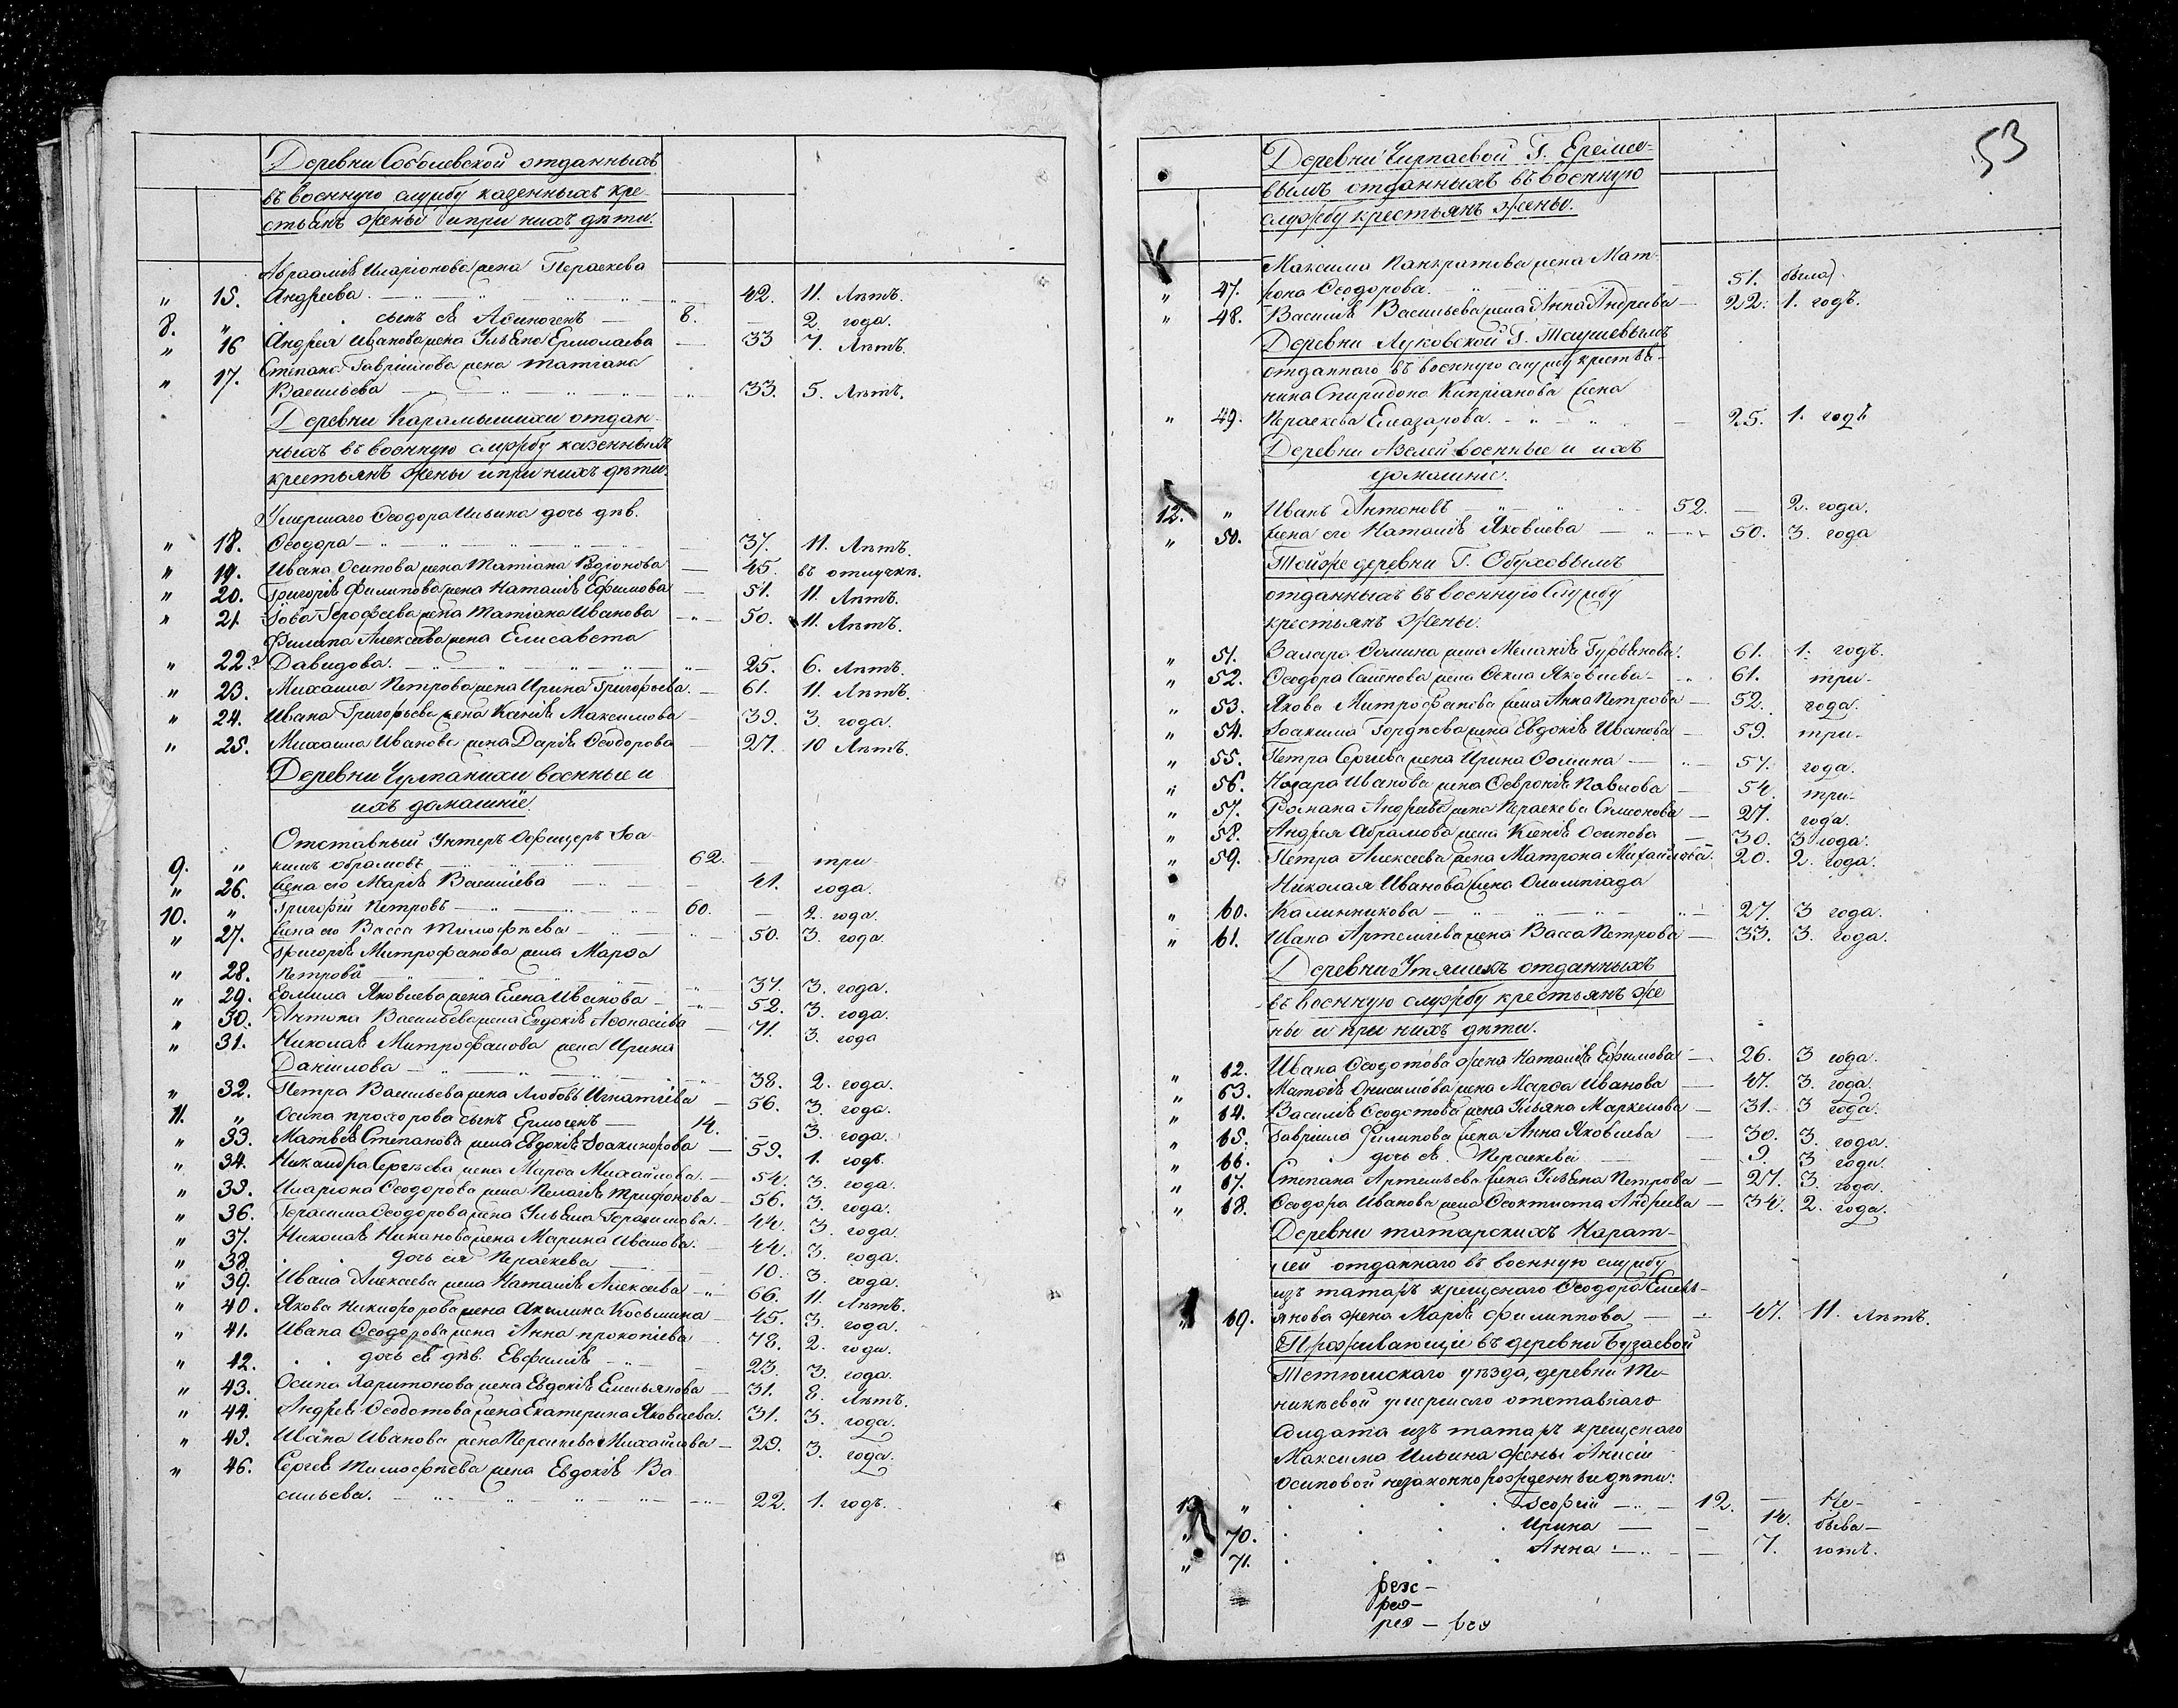 Деревни Соболевской отданныхъ
въ военную службу казенныхъ кре-
стьянъ жены и при нихъ дѣти.
Авраамія Иларіонова жена Параскева
" 15. Андреева. 42. 11. Лѣтъ.
8. " сынъ ея Афиногенъ — 8. — 2. года.
" 16 Андрея Иванова жена Ульяна Ермолаева — 33 7. Лѣтъ.
Степана Гавріилова жена Татіана
" 17. Васильева 33. 5. Лѣтъ.
Деревни Карамышихи отдан-
ныхъ въ военную службу казенныхъ
крестьянъ жены и при нихъ дѣти.
Умершаго Ѳеодора Ильина дочь дѣв.
" 18. Ѳеодора 37. 11. Лѣтъ.
" 19. Ивана Осипова жена Татіана — 45. въ отлучкѣ.
" 20. Григорія Филипова жена Наталія Ефимова — 51. 11. Лѣтъ.
" 21. Іова Герофеева жена Татіана Иванова 50. 11. Лѣтъ.
Филипа Алексеева жена Елисавета
" 22. Давидова. 25. 6. Лѣтъ.
" 23. Михаила Петрова жена Ирина Григорьева. — 61. 11. Лѣтъ.
" 24. Ивана Григорьева жена Ксенія Максимова — 39. 3. года.
" 25. Михаила Иванова жена Дарія Ѳеодорова — 27. 10 Лѣтъ.
Деревни Чулпанихи военные и
ихъ домашніе.
Отставный Унтеръ Офицеръ Іоа-
9. " кимъ Абрамовъ 62. — три
" 26. жена его Марія Васильева — 41. года.
10. " Григорій Петровъ 60. — 2. года.
" 27. жена его Васса Тимофѣева 50. 3. года
Григорія Митрофанова жена Марѳа
" 28. Петрова 37. 3. года.
" 29. Ермила Яковлева жена Елена Иванова — 52. 3. года.
" 30. Антона Васильева жена Евдокія Аѳонасіева — 71. 3. года
" 31. Николая Митрофанова жена Ирина
Даніилова 38. 2. года.
" 32. Петра Васильева жена Любовь Игнатіева — 56. 3. года.
11. " Осипа Прохорова сынъ Ермогенъ — 14. — 3. года.
" 33. Матвея Степанова жена Евдокія — 59. 1. годъ.
" 34. Никандра Сергѣева жена Марѳа Михайлова. — 54. 3. года.
" 35. Иларіона Ѳеодорова жена Пелагія Трифонова — 56. 3. года.
" 36. Герасима Ѳеодорова жена Ульяна Герасимова. — 44. 3. года.
" 37. Николая Никанова жена Марина Иванова. — 44. 3. года.
" 38. дочь ея Параскева 10. 3. года.
" 39. Ивана Алексеева жена Наталія Алексеева 66. 11. Лѣтъ.
" 40. Якова Никифорова жена Акилина Косьмина — 45. 3. года.
" 41. Ивана Ѳеодорова жена Анна Прокопіева — 78. 2. года.
" 42. дочь ея дѣв. Евфимія 23. 3. года.
" 43. Осипа Харитонова жена Евдокія Емельянова — 31. 8. Лѣтъ.
" 44. Андрея Ѳеодотова жена Екатерина Яковлева. 31. 3. года.
" 45. Ивана Иванова жена Параскева Михайлова — 29. 3. года.
" 46. Сергея Тимофѣева жена Евдокія Ва
сильева. 22. 1. годъ.
53
Деревни Чирпаевой Г. Еремее-
вымъ отданныхъ въ военную
службу крестьянъ жены.
Максима Панкратова жена Мат-
" 47. рона Ѳеодорова. 51. была
" 48. Василія Васильева жена Анна Андреева — 22. 1. годъ.
Деревни Луковской Г.
отданнаго въ военную службу крестья-
нина Спиридона Кипріанова жена
" 49. Параскева Елеазарова. 25. 1. годъ
Деревни Азелей военные и ихъ
домашніе.
12. " Иванъ Антоновъ 52. — 2. года.
" 50. жена его Наталія Яковлева — 50. 3. года
Тойже деревни Г. Обуховымъ
отданныхъ въ военную службу
крестьянъ жены.
" 51. Захара Ѳомина жена Меланія Гурьянова. 61. 1. годъ.
" 52. Ѳеодора Семенова жена Ѳекла Яковлева 61. три-
" 53. Якова Митрофанова жена Анна Петрова — 52. года.
" 54. Іоакима Гордѣева жена Евдокія Иванова — 59. три-
" 55. Петра Сергѣева жена Ирина Ѳомина 57. года.
" 56. Назара Иванова жена Февронія Павлова — 54. три-
" 57. Романа Андреева жена Параскева Симеонова — 27. года.
" 58. Андрея Абрамова жена Ксенія Осипова — 30. 3 года.
" 59. Петра Алексеева жена Матрона Михайлова. 20. 2. года.
Николая Иванова жена Олимпіада
" 60. Калинникова 27. 3 года.
" 61. Ивана Артемьева жена Васса Петрова — 33. 3. года.
Деревни Утяшекъ отданныхъ
въ военную службу крестьянъ же
ны и при нихъ дѣти.
" 62. Ивана Ѳеодотова жена Наталія Ефимова 26. 3 года.
" 63. Матвія Онисимова жена Марѳа Иванова — 47. 3. года.
" 64. Василія Ѳеодотова жена Ульяна Маркелова — 31. 3 года.
" 65. Гавріила Филипова жена Анна Яковлева — 30. 3. года.
" 66. дочь ея Параскева — 9. 3 года.
" 67. Степана Артемьева жена Ульяна Петрова — 27. 3. года.
" 68. Ѳеодора Иванова жена Ѳеоктиста Андреева — 34. 2. года.
Деревни татарскихъ Нарат-
лей отданнаго въ военную службу
изъ татаръ крещенаго Ѳеодора Емель-
" 69. янова жена Марія Филиппова — 47. 11. Лѣтъ.
Проживающіе въ деревни Бузаевой
Тетюшскаго уѣзда, деревни
умершаго отставнаго
солдата изъ татаръ крещенаго
Максима Ильина жены Анисіи
Осиповой незаконнорожденные дѣти:
13. " Георгій 12. — Не-
" 70. Ирина — 14. быва-
" 71. Анна 7. готъ.